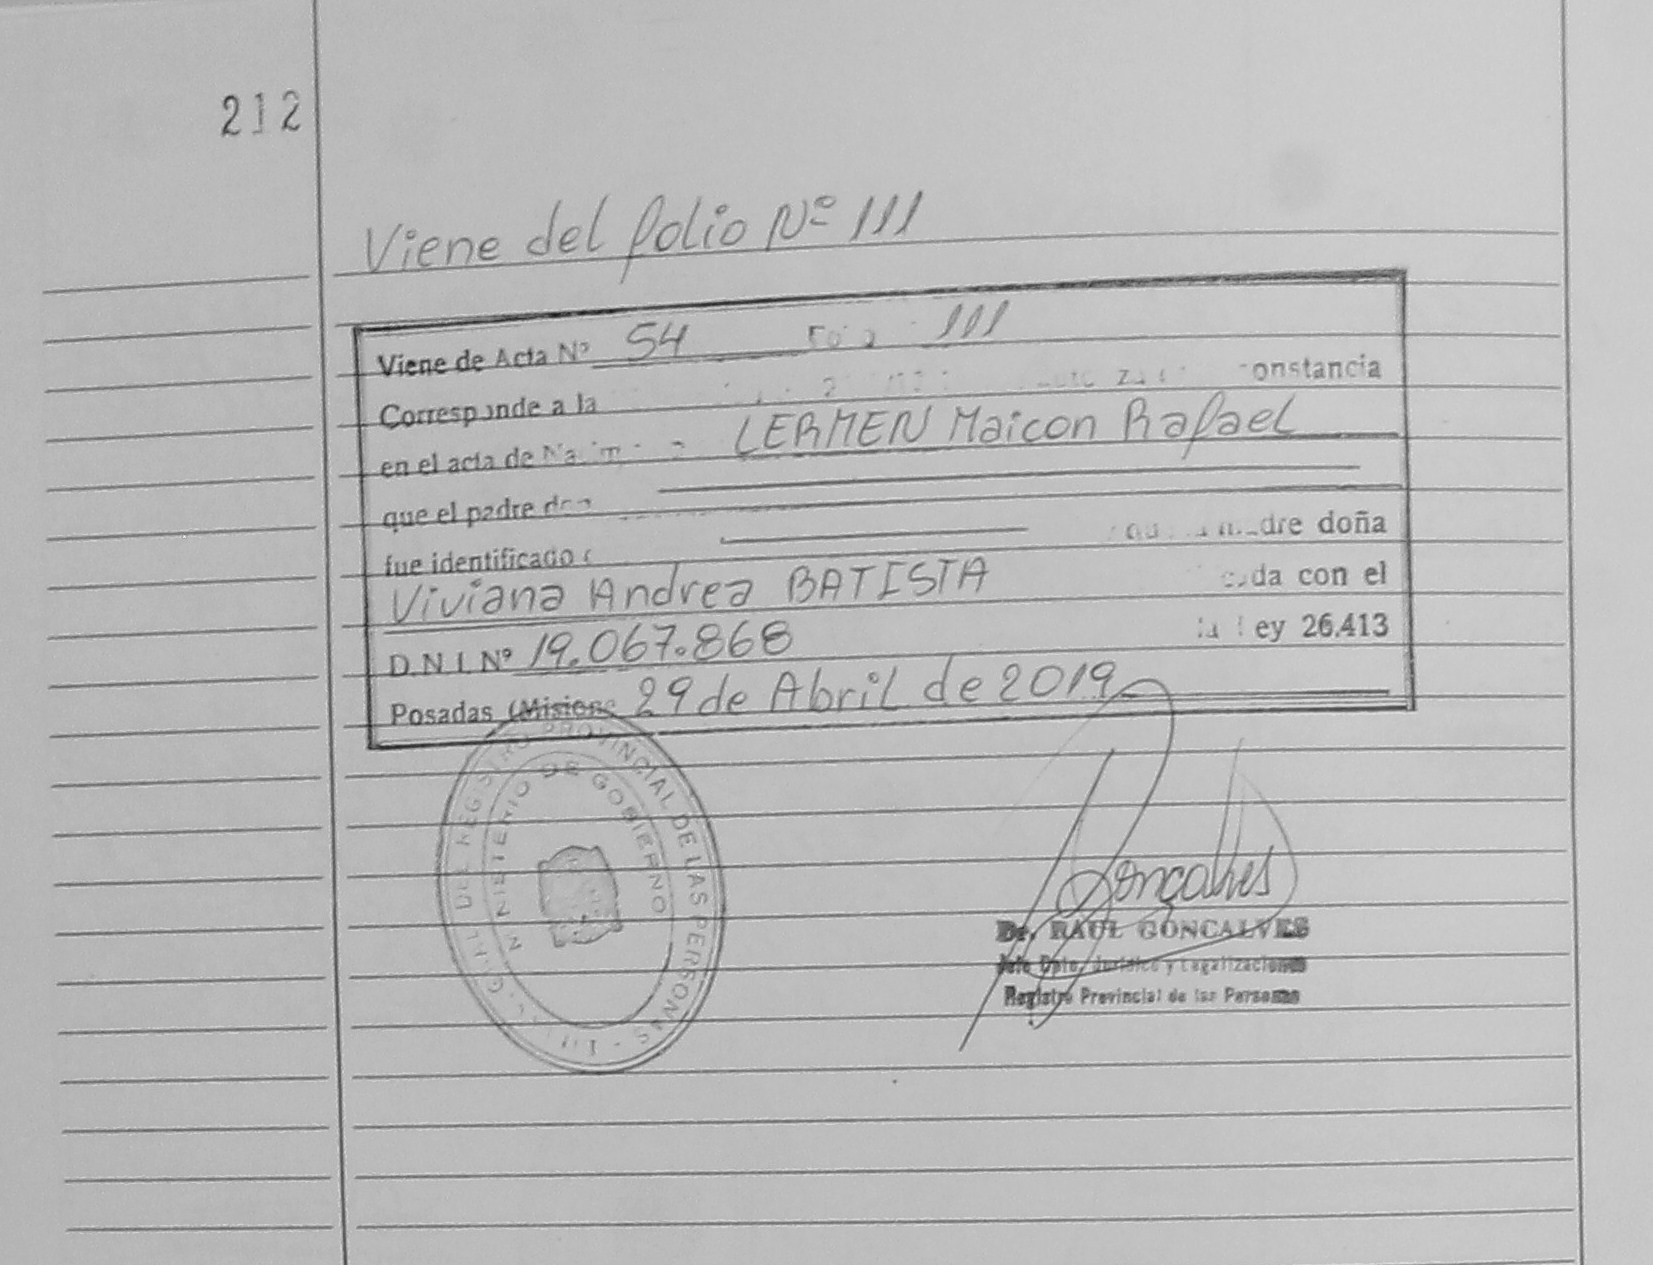 212
Viene del folio Nº 111
Viene de Acta Nº 54 111
Corresponde a la constancia
en el acta de LERMEN Maicon Rafael
que el padre don
fue identificado madre doña
Viviana Andrea BATISTA con el
D.N.I. Nº 19.067.868 la Ley 26.413
Posadas (Misiones 29 de Abril de 2019
DEL REGISTRO PROVINCIAL DE LAS PERSONAS
MINISTERIO DE GOBIERNO
Gonçalves
Dr. RAUL GONCALVES
Jefe Dpto. Jurídico y Legalizaciones
Registro Provincial de las Personas